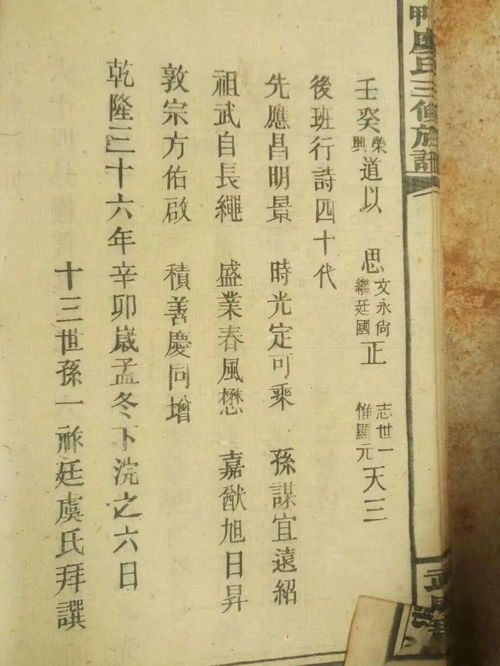 廖氏三修族譜
壬癸榮興道以 思文永尙繼廷國正 志世一惟顯元天三
後班行詩四十代
先應昌明景 時光定可乘 孫謀宜遠紹
祖武自長繩 盛業春風懋 嘉猷旭日昇
敦宗方佑啟 積善慶同增
乾隆三十六年辛卯歲孟冬下浣之六日
十三世孫一
廷虞氏拜譔
武